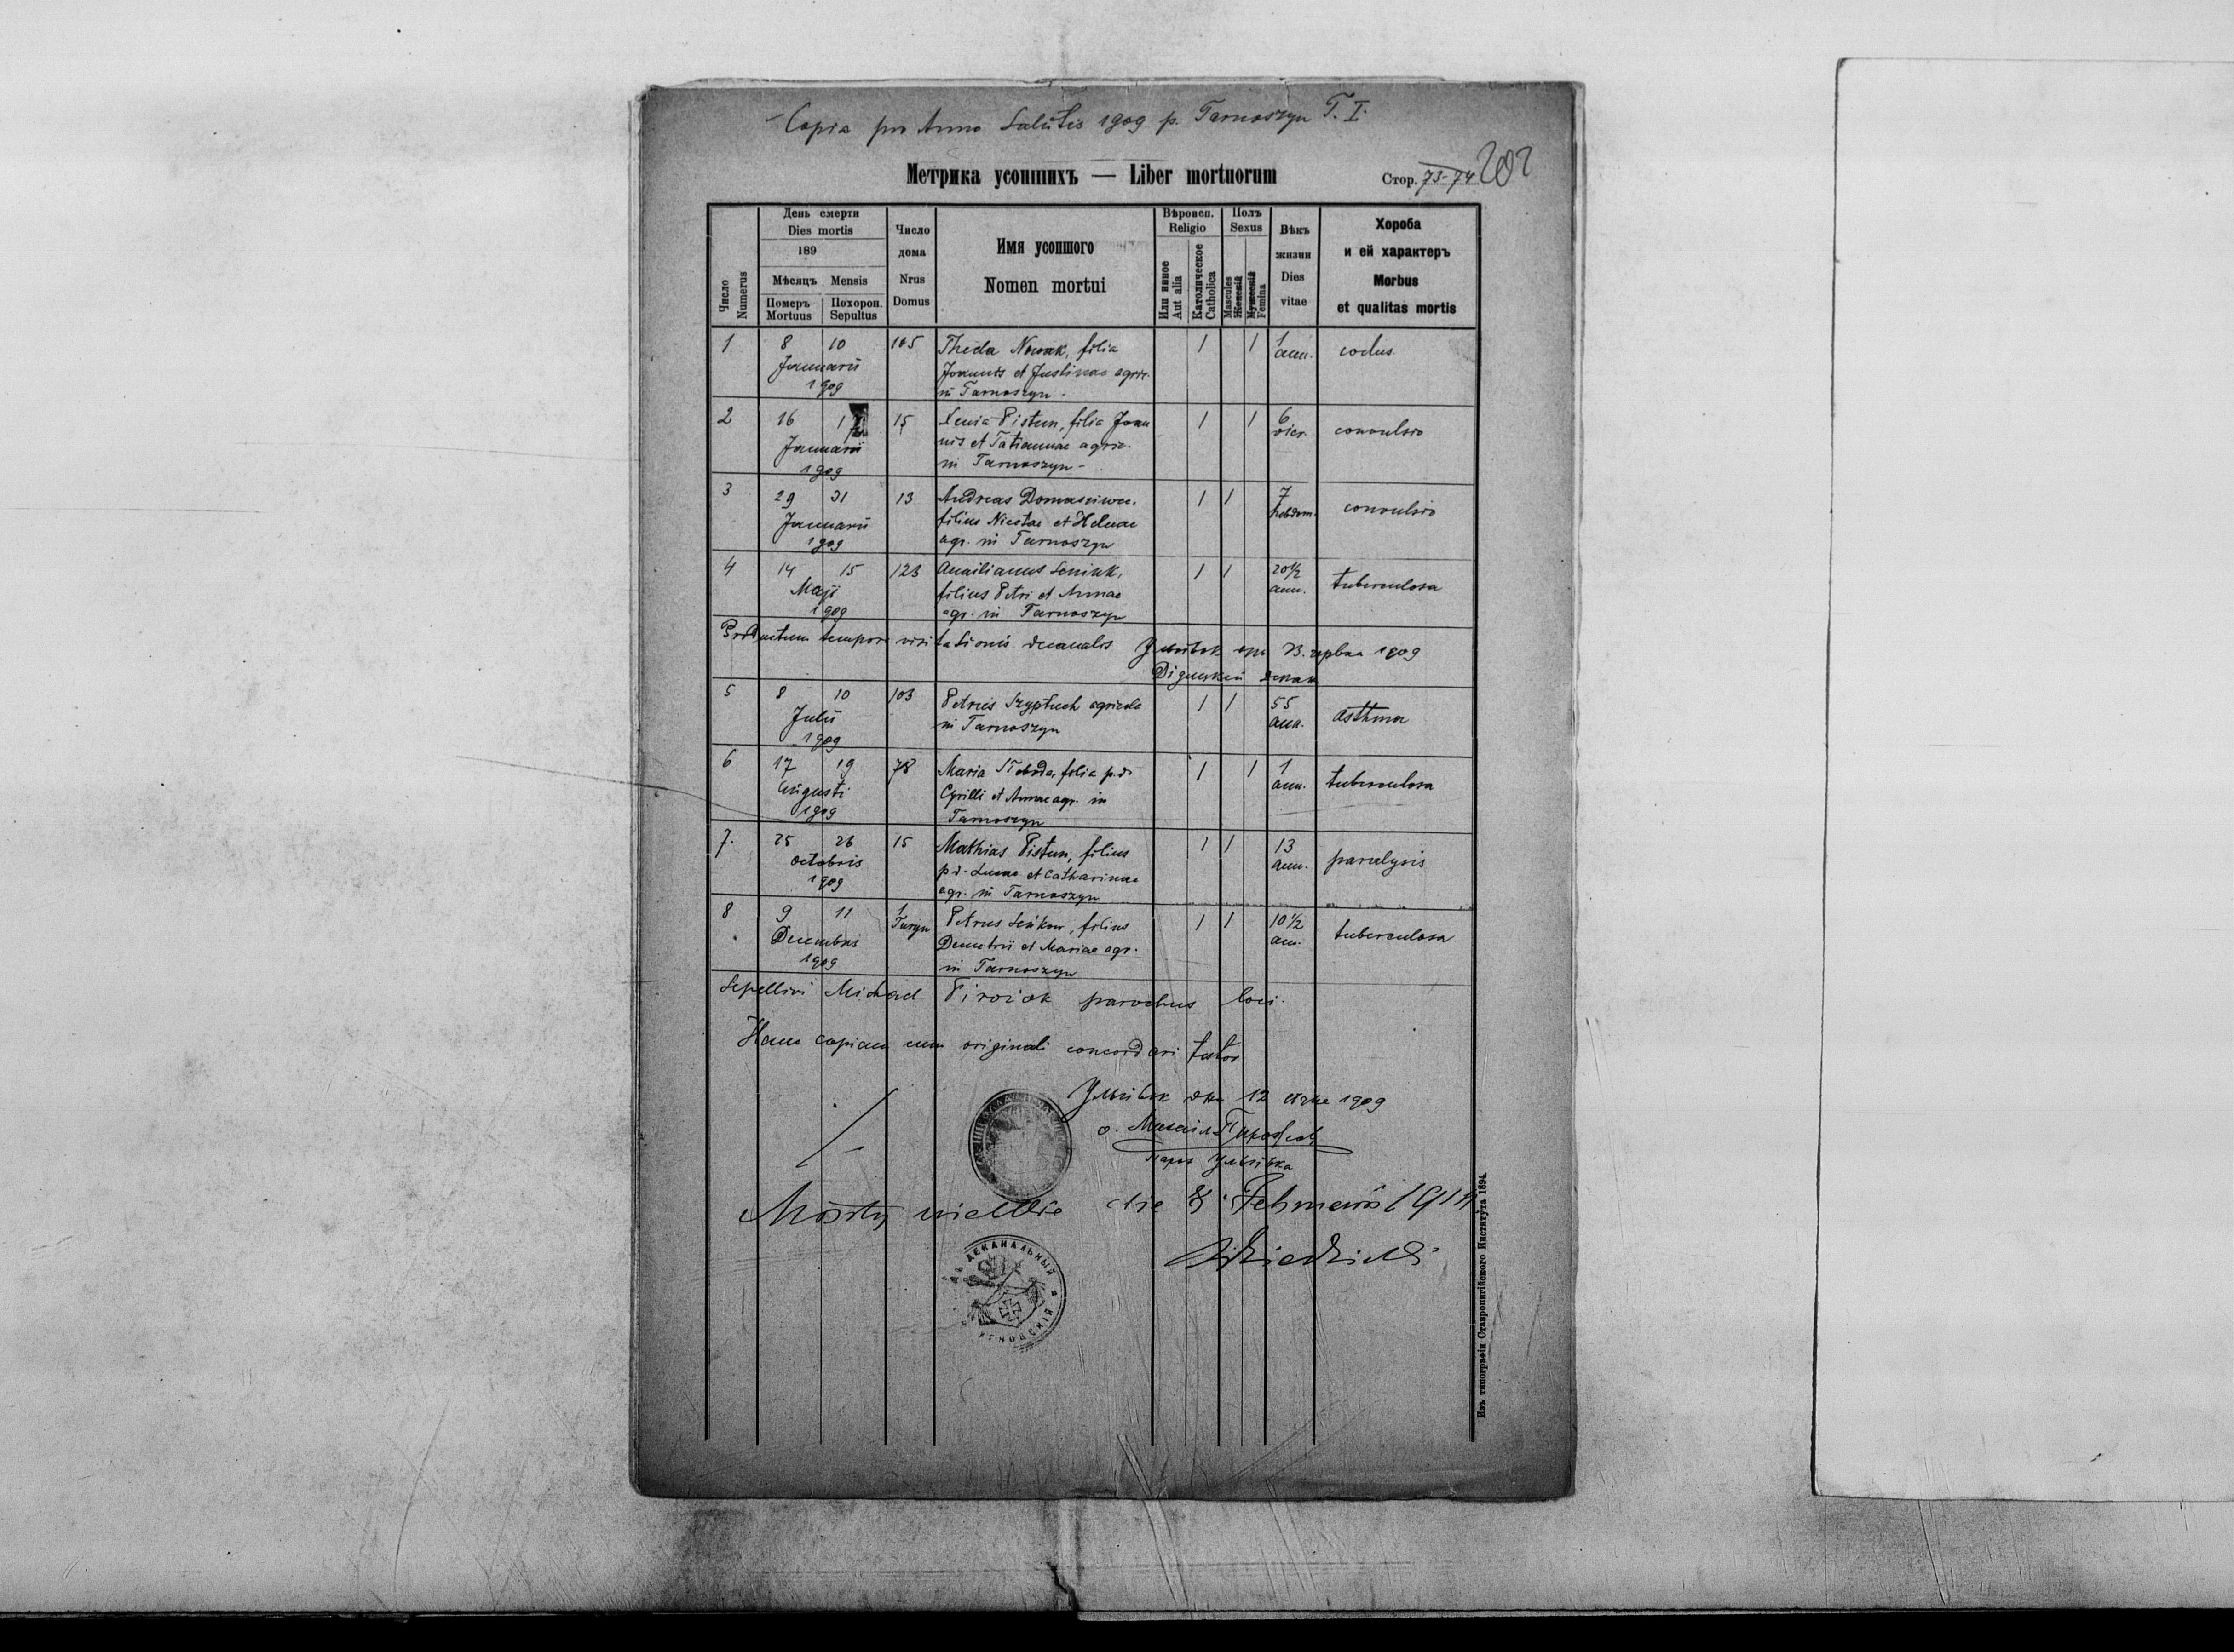 Copia pro Anno Salutis 1909 p. Tarnoszyn T. I.
Метрика усопшихъ — Liber mortuorum
Стор. 73-74 202
Число Numerus
День смерти
Dies mortis
189
Мѣсяцъ Mensis
Померъ Mortuus
Похорон. Sepultus
Число дома
Nrus Domus
Имя усопшого
Nomen mortui
Вѣроисп.
Religio
Или инное Aut alia
Католическое Catholica
Полъ
Sexus
Mascules Женскій
Мужескій Femina
Вѣкъ жизни
Dies vitae
Хороба
и ей характеръ
Morbus
et qualitas mortis
1 8 10 Januarii 1909 105 Theda Nowak, filia
Joannis et Justinae agric.
in Tarnoszyn - 1 1 1 ann.
2 16 Januarii 1909 15 Xenia Pistun, filia Joan
nis et Tatiannae agric.
in Tarnoszyn - 1 1 6 convulsio
3 29 31 Januarii 1909 13 Andreas
filius Nicetae et Helenae
agr. in Tarnoszyn 1 1 7 hebdom. convulsio
4 14 15 Maji 1909 123
filius Petri et Annae
agr. in Tarnoszyn 1 1 20½ ann. tuberculosa
Productum tempore visitationis decanalis 1909
5 8 10 Julii 1909 103 Petrus agricola
in Tarnoszyn 1 1 55 ann. asthma
6 17 19 Augusti 1909 78 Maria filia p.d.
Cyrilli et Annae agr. in
Tarnoszyn 1 1 1 ann. tuberculosa
7. 25 26 octobris 1909 15 Mathias Pistun, filius
p d. Lucae et Catharinae
agr. in Tarnoszyn 1 1 13 ann. paralysis
8 9 11 Decembris 1909 1 Petrus Senkow, filius
Demetrii et Mariae agr.
in Tarnoszyn 1 1 10½ ann. tuberculosa
Sepellivi Michael Pirożok parochus loci.
Hanc copiam cum originali concordari testor
Ульвівок дня 12 1909
о. Михаил
Парох Ульвівка
Mosty wielkie die 8 Februarii
ДЕКАНАЛЬНЫЙ
Изъ типографіи Ставропигійского Института 1894.